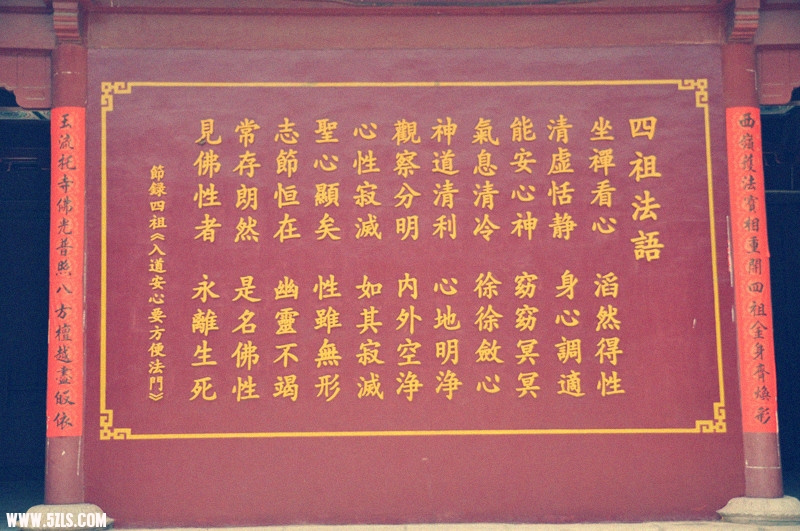 西嶺護法寶相重開四祖金身齊煥彩
四祖法語
坐禪看心 滔然得性
清虛恬静 身心調適
能安心神 窈窈冥冥
氣息清冷 徐徐斂心
神道清利 心地明浄
觀察分明 内外空浄
心性寂滅 如其寂滅
聖心顯矣 性雖無形
志節恒在 幽靈不竭
常存朗然 是名佛性
見佛性者 永離生死
節録四祖《入道安心要方便法門》
玉流托寺佛光普照八方檀越盡皈依
WWW.5ZLS.COM